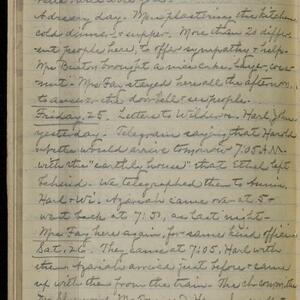 A dreary day. Mrs plastering the kitchen
cold dinner & supper. More than 20 differ-
ent people here, to offer sympathy & help.
Mrs Burton brought a nice cake, layer, cocoa-
nut. Mrs Fay stayed here all the afternoon
to answer the door bell & see people.
Friday, 25. Letters to Wilder & Harl, John
yesterday. Telegram saying that Harold
would arrive tomorrow 7.05 A.M.
with the "earthly house" that Ethel left
behind. We telegraphed them to Annie,
Harl & Wi. Azariah came over at 5 &
went back at 7:51, as last night.
Mrs Fay here again, for same kind offices.
Sat. 26. They came at 7:05, Harl with
them. Azariah arrived just before & came
up with them from the train. The